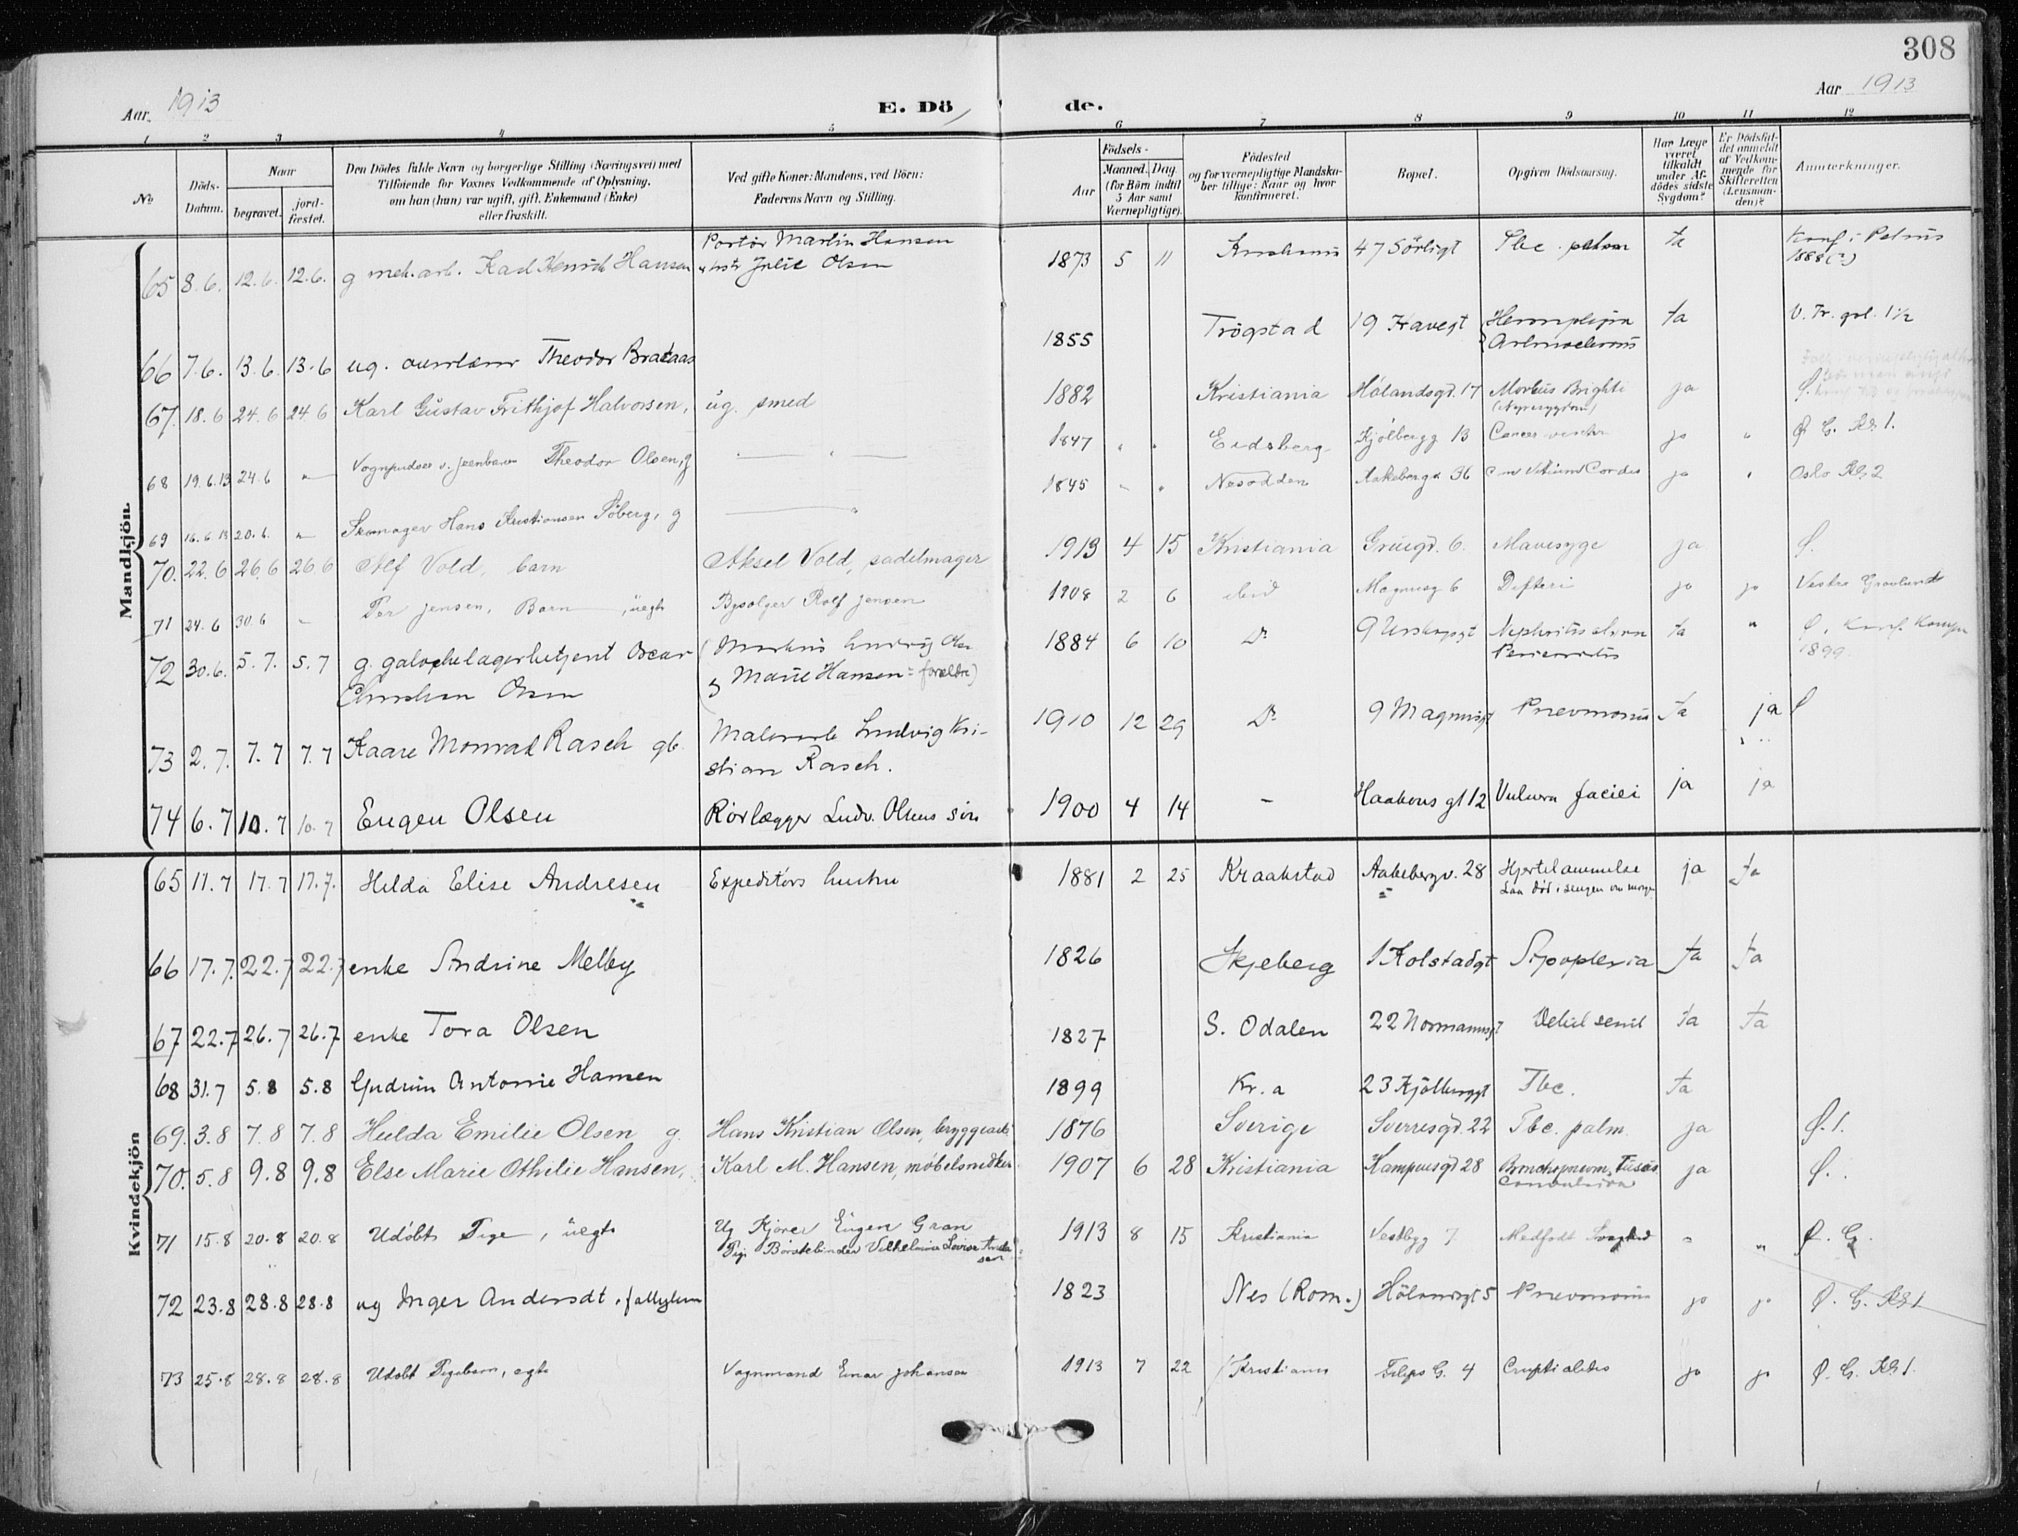 308
Aar 1913 E. Dö de. Aar 1913
1 2 3 4 5 6 7 8 9 10 11 12
No
Döds-Datum.
Naar
begravet.
jord-fæstet.
Den Dödes fulde Navn og borgerlige Stilling (Næringsvei) med
Tilföiende for Voxnes Vedkommende af Oplysning,
om han (hun) var ugift, gift, Enkemand (Enke)
eller fraskilt.
Ved gifte Koner: Mandens, ved Börn:
Faderens Navn og Stilling.
Födsels-
Aar
Maaned. Dag
(for Börn indtil
5 Aar samt
Værnepligtige).
Födested
og for værnepligtige Mandska-
ber tillige: Naar og hvor
konfirmeret.
Bopæl.
Opgiven Dödsaarsag.
Har Læge
været
tilkaldt
under Af-
dödes sidste
Sygdom?
Er Dödsfal-
det anmeldt
af Vedkom-
mende for
Skifteretten
(Lensman-
den)?
Anmærkninger.
Mandkjön.
65 8.6. 12.6. 12.6. g mek. arb. Karl Henrik Hansen Portör Martin Hansen Julie Olsen 1873 5 11 47 Sörligt Tbc. ja Konf. i Petrus 1888 (?)
66 7.6. 13.6 13.6 ug. Theodor 1855 Trögstad 19 ja
67. 18.6 24.6 24.6 Karl Gustav Frithjof Halvorsen, ug. smed 1882 Kristiania Hölandsgd. 17 Morbus Brighti ja Ø.
68 19.6.13 24.6 " Theodor Olsen, g 1847 " " Eidsberg Kjölbergg 13 Cancer ja " Ø G. Kl. 1.
69 16.6 13 20.6. " Skomager Hans Kristiansen Söberg, g 1845 " " Nesodden 36 Vitium Cordis ja " Oslo Kl. 2
70. 22.6 26.6 26.6 Alf Vold, barn Aksel Vold, sadelmager 1913 4 15 Kristiania Grüegd. 6. Mavesyge ja Ø.
71 24.6 30.6 " Per Jensen, Barn, uegte Rolf Jensen 1908 2 6 ibid Magnusg 6 Difteri ja ja Vestre Gravlund
72 30.6. 5.7. 5.7 g. galochelagerbetjent Oscar
Christian Olsen
(Markus Ludvig Olsen
Marie Hansen = forældre)
1884 6 10 Do Nephritis ja " Ø. Konf. Kampen
1899.
73 2.7. 7.7 7.7 Kaare Monrad Rasch gb. Malerarb Ludvig Kri-
stian Rasch.
1910 12 29 Do 9 Magnusgt Pnevmoni ja ja Ø
74 6.7 10.7 10.7 Eugen Olsen Rörlægger Ludv. Olsens sön 1900 4 14 - Haakons gt 12 Vulnera faciei ja ja
Kvindekjön
65 11.7 17.7 17.7. Hilda Elise Andresen Expeditörs hustru 1881 2 25 Kraakstad Aakebergv. 28 Hjertelammelse
Laa död i sengen om morgen
ja ja
66 17.7. 22.7 22.7 enke Andrine Melby 1826 Skjeberg 1 Kolstadgt Apoplexia ja ja
67 22.7 26.7 26.7 enke Tora Olsen 1827 S. Odalen 22 Normannsgt Debil senil ja ja
68 31.7 5.8 5.8 Gudrun Antonie Hansen 1899 Kr.a 23 Kjölberggt Tbc. ja
69. 3.8 7.8 7.8 Hulda Emilie Olsen g. Hans Kristian Olsen, bryggearb. 1876 Sverige Sverresgd. 22 Tbc. pulm. ja Ø.1.
70. 5.8 9.8 9.8 Else Marie Othilie Hansen, Karl M. Hansen, møbelsnedker 1907 6 28 Kristiania Kampensgd 28 Bronchopneum. Tussis
Convulsiva
ja Ø.
71 15.8 20.8 20.8 Udöbt Pige, uegte Ug Kjörer Eugen Gran
Pige Börstebinder Vilhelmine Lovise Andersen
1913 8 15 Kristiania Vestbyg 7 Medfödt Svaghed " " Ø. G.
72 23.8 28.8 28.8 ug Inger Andersdt. fattiglem 1823 Nes (Rom.) Hölandsgt 5 Pnevmoni ja ja Ø. G. Kl 1.
73 25.8 28.8 28.8 Udöbt Pigebarn, egte Vognmand Einar Johansen 1913 7 22 Kristiania Filips G. 4 ja ja Ø. G. Kl 1.